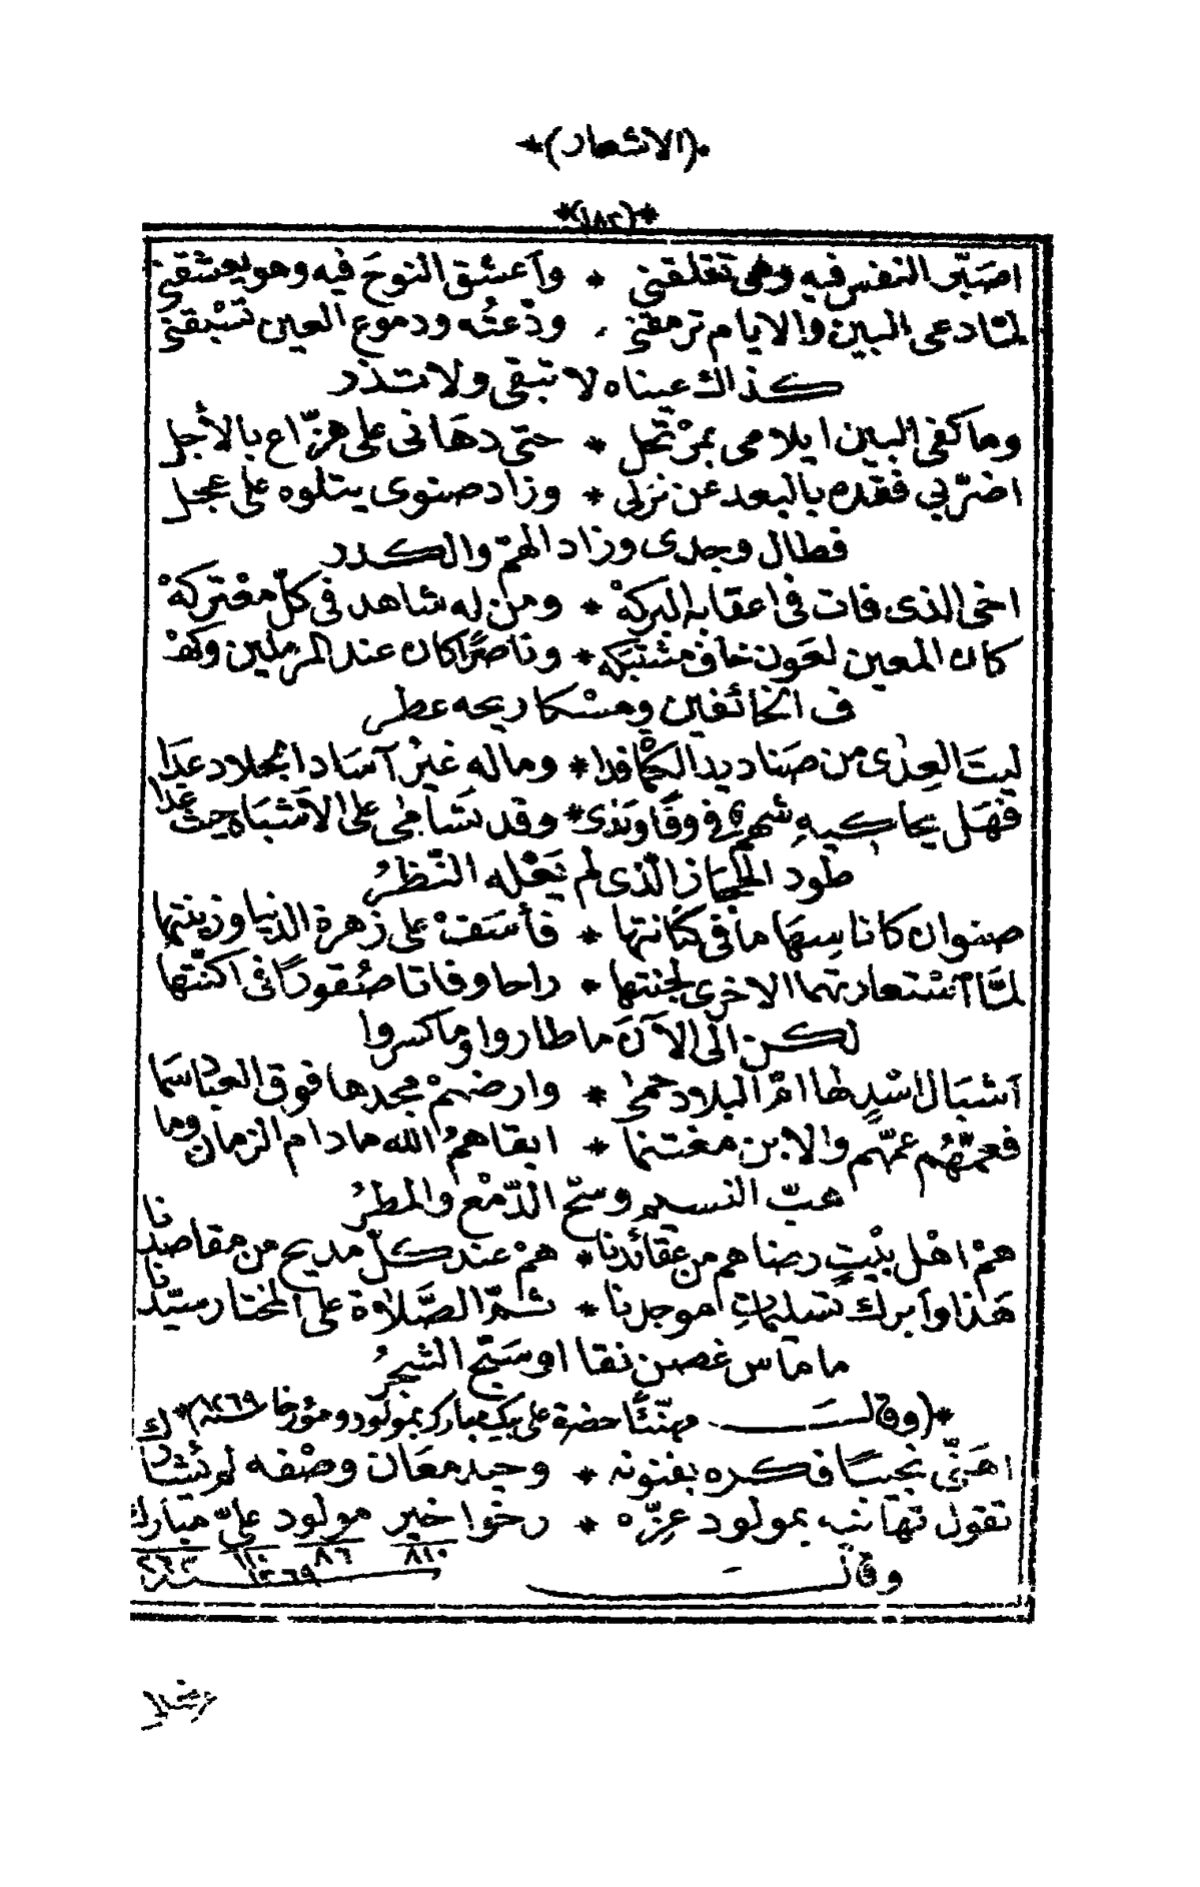 *(الاشعار)*
*(١٨٢)*
اصَبّر النفس فيه وهى تقلقني * وآعشق النوحَ فيه وهو يعشقني
لمّا دعى البين والايام ترمقني * ودّعتُه ودموع العين تسْبقني
كذاك عيناه لا تبقى ولا تذر
وما كفى البين ايلامى بمرْتحل * حتى دهَانى على هزّاع بالأجل
اضرّبي فقده بالبعد عن نزلى * وزاد صنوى يتلوه على عجل
فطال وجدى وزاد الهمّ والكدر
اخى الذى فات فى اعقابه البركهْ * ومن له شاهد فى كلّ معْتركهْ
كان المعين لعَون خاف مشتبَكه * وناصرًا كان عند المرملين وكهْ
ف الخائفين ومسْكا ريحه عطر
ليتَ العِدٰى من صَناديد الحِمٰا فدا * وماله غيْرُ آسَاد الجلاد عدَا
فهَل يحاكيهِ شهم فى وقًا وندى * وقد تسَامٰى على الاشبَاه حيث غدا
طود الحجَاز الّذى لم يَعْله النّظرُ
صنوان كانا بِسهَا مٰا فى كنانتها * فأسَفْ على زهرة الدنيا وزينتها
لمَّا آسْتعارتهما الاخرى لجنتها * راحا وفاتا صُقودًا فى اكنّتها
لكن الى الآنَ ما طاروا وما كسروا
آشبَال اسْدٍ لها امّ البلاد حمٰى * وارضهمْ مجدها فوق العباد سَما
فعمّهُم عمّهم والابن مغتنما * ابقاهمُ الله مادام الزمان وما
هبّ النسيم وسَحّ الدّمْع والمطرُ
همْ اهْل بيْتٍ رضاهم من عقائدنا * همْ عند كلّ مديح من مقاصدنا
هَذا وآبرك تسليمٰاتِ موجدنا * ثمّ الصَّلاوة على المختار سيّدنا
ما مٰاس غصن نقا او سَبّح الشجرُ
*(وقالــــــت مهنّئًا حضرة على بيك مبارك بمولود ومؤرخا سنه ١٢٦٩)*
اهَنِّى نجيبًا فكره بفنونه * وحيد معَان وصْفه لم يُشارك
تقول تهانيه بمولود عزّه * رخوا خير مولود علىّ مبارك
٨١٠ ٨٦ ١١٠ ٢٦٣
سنة ١٢٦٩
وقالَــــــت